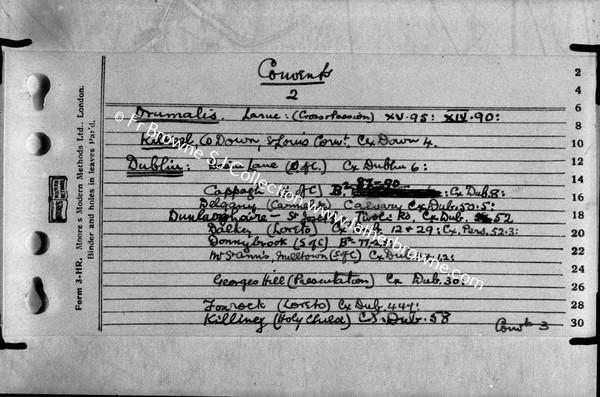 Convents
2
Drumalis. Larne: (Cross & Passion) XV.95: XIV.90:
Kilkeel, Co Down, St Louis Convt. Cx Down 4.
Dublin: Lane (S of C). Cx Dublin 6:
Cappagh (S of C) B² 87-90 Cx Dub 8:
Delgany (Carmel) Calvary Cx Dub. 50:5:
Dunlaoghaire - St Joseph's Tivoli Rd. Cx Dub. 52
Dalkey (Loreto) Cx 12 & 29: Cx. Pers. 52.3:
Donnybrook (S of C) B² 77-29:
Mt St Ann's, Milltown (S of C) Cx Dub 12:
Georges Hill (Presentation) Cx Dub. 30:
Foxrock (Loreto) Cx Dub. 44
Killiney (Holy Child) Cx. Dub. 58
Convts 3
2
4
6
8
10
12
14
16
18
20
22
24
26
28
30
Form 3-HR. Moore's Modern Methods Ltd., London.
Binder and holes in leaves Pat'd.
© Fr Browne S.J. Collection, www.fatherbrowne.com